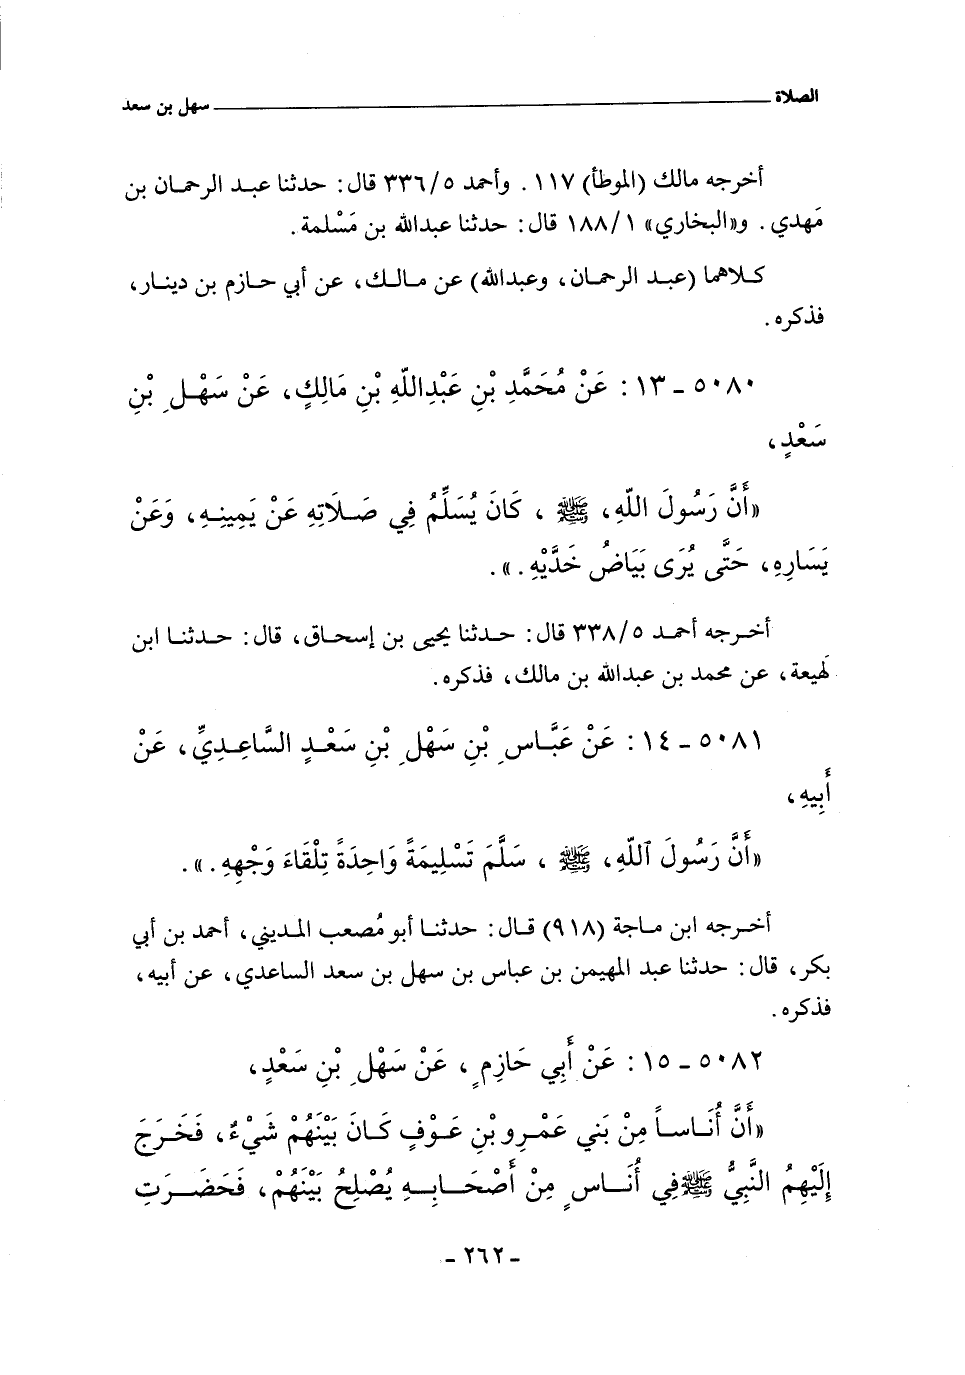 الصلاة ــــــــــ سهل بن سعد
أخرجه مالك (الموطأ) ١١٧ . وأحمد ٣٣٦/٥ قال : حدثنا عبد الرحمان بن
مَهدي . و«البخاري» ١٨٨/١ قال : حدثنا عبدالله بن مَسْلمة .
كلاهما (عبد الرحمان ، وعبدالله) عن مالك ، عن أبي حازم بن دينار ،
فذكره .
٥٠٨٠ ـ ١٣ : عَنْ مُحَمَّدِ بْنِ عَبْدِاللَّهِ بْنِ مَالِكٍ ، عَنْ سَهْلِ بْنِ
سَعْدٍ ،
«أَنَّ رَسُولَ اللَّهِ ، ﷺ ، كَانَ يُسَلِّمُ فِي صَلَاتِهِ عَنْ يَمِينِهِ ، وَعَنْ
يَسَارِهِ ، حَتَّى يُرَى بَيَاضُ خَدَّيْهِ . » .
أخرجه أحمد ٣٣٨/٥ قال : حدثنا يحيى بن إسحاق ، قال : حدثنا ابن
لَهيعة ، عن محمد بن عبدالله بن مالك ، فذكره .
٥٠٨١ ـ ١٤ : عَنْ عَبَّاسِ بْنِ سَهْلِ بْنِ سَعْدٍ السَّاعِدِيِّ ، عَنْ
أَبِيهِ ،
«أَنَّ رَسُولَ ٱللَّهِ ، ﷺ ، سَلَّمَ تَسْلِيمَةً وَاحِدَةً تِلْقَاءَ وَجْهِهِ . » .
أخرجه ابن ماجة (٩١٨) قال : حدثنا أبو مُصعب المديني ، أحمد بن أبي
بكر ، قال : حدثنا عبد المهيمن بن عباس بن سهل بن سعد الساعدي ، عن أبيه ،
فذكره .
٥٠٨٢ ـ ١٥ : عَنْ أَبِي حَازِمٍ ، عَنْ سَهْلِ بْنِ سَعْدٍ ،
«أَنَّ أُنَاساً مِنْ بَنِي عَمْرِو بْنِ عَوْفٍ كَانَ بَيْنَهُمْ شَيْءٌ ، فَخَرَجَ
إِلَيْهِمُ النَّبِيُّ ﷺ فِي أُنَاسٍ مِنْ أَصْحَابِهِ يُصْلِحُ بَيْنَهُمْ ، فَحَضَرَتِ
ـ ٢٦٢ ـ